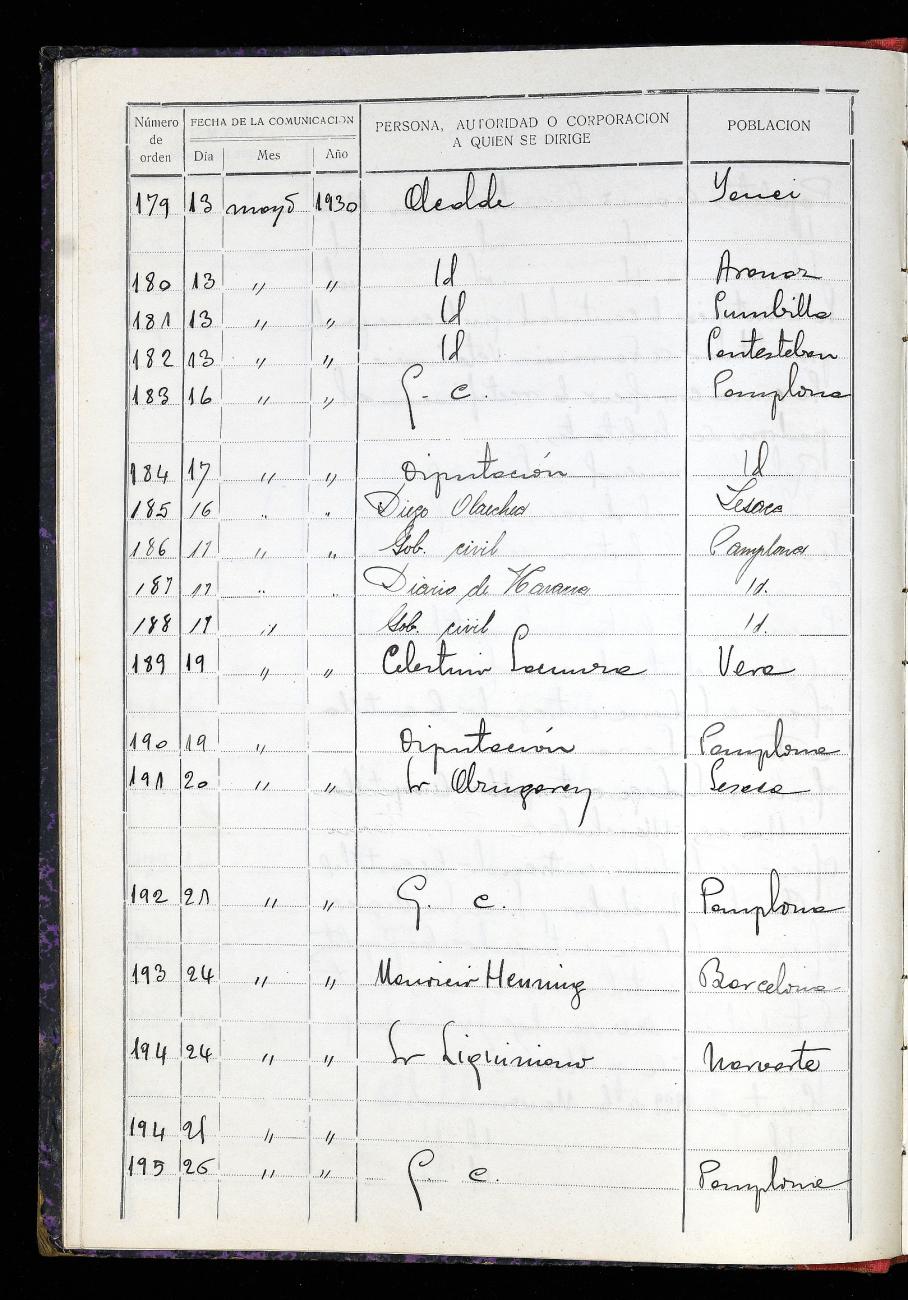 Número de orden FECHA DE LA COMUNICACION PERSONA, AUTORIDAD O CORPORACION A QUIEN SE DIRIGE POBLACION
Día Mes Año
179 13 mayo 1930 Alcalde Yanci
180 13 " " Id Aranaz
181 13 " " Id Sumbilla
182 13 " " Id Santesteban
183 16 " " G. c. Pamplona
184 17 " " Diputación Id
185 16 " " Diego Olaechea Lesaca
186 17 " " Gob. civil Pamplona
187 17 " " Diario de Navarra Id.
188 17 " " Gob. civil Id.
189 19 " " Celestino Vera
190 19 " Diputación Pamplona
191 20 " " Sr Lesaca
192 21 " " G. c. Pamplona
193 24 " " Mauricio Henning Barcelona
194 24 " " Sr Narvarte
194 " "
195 26 " " G. c. Pamplona